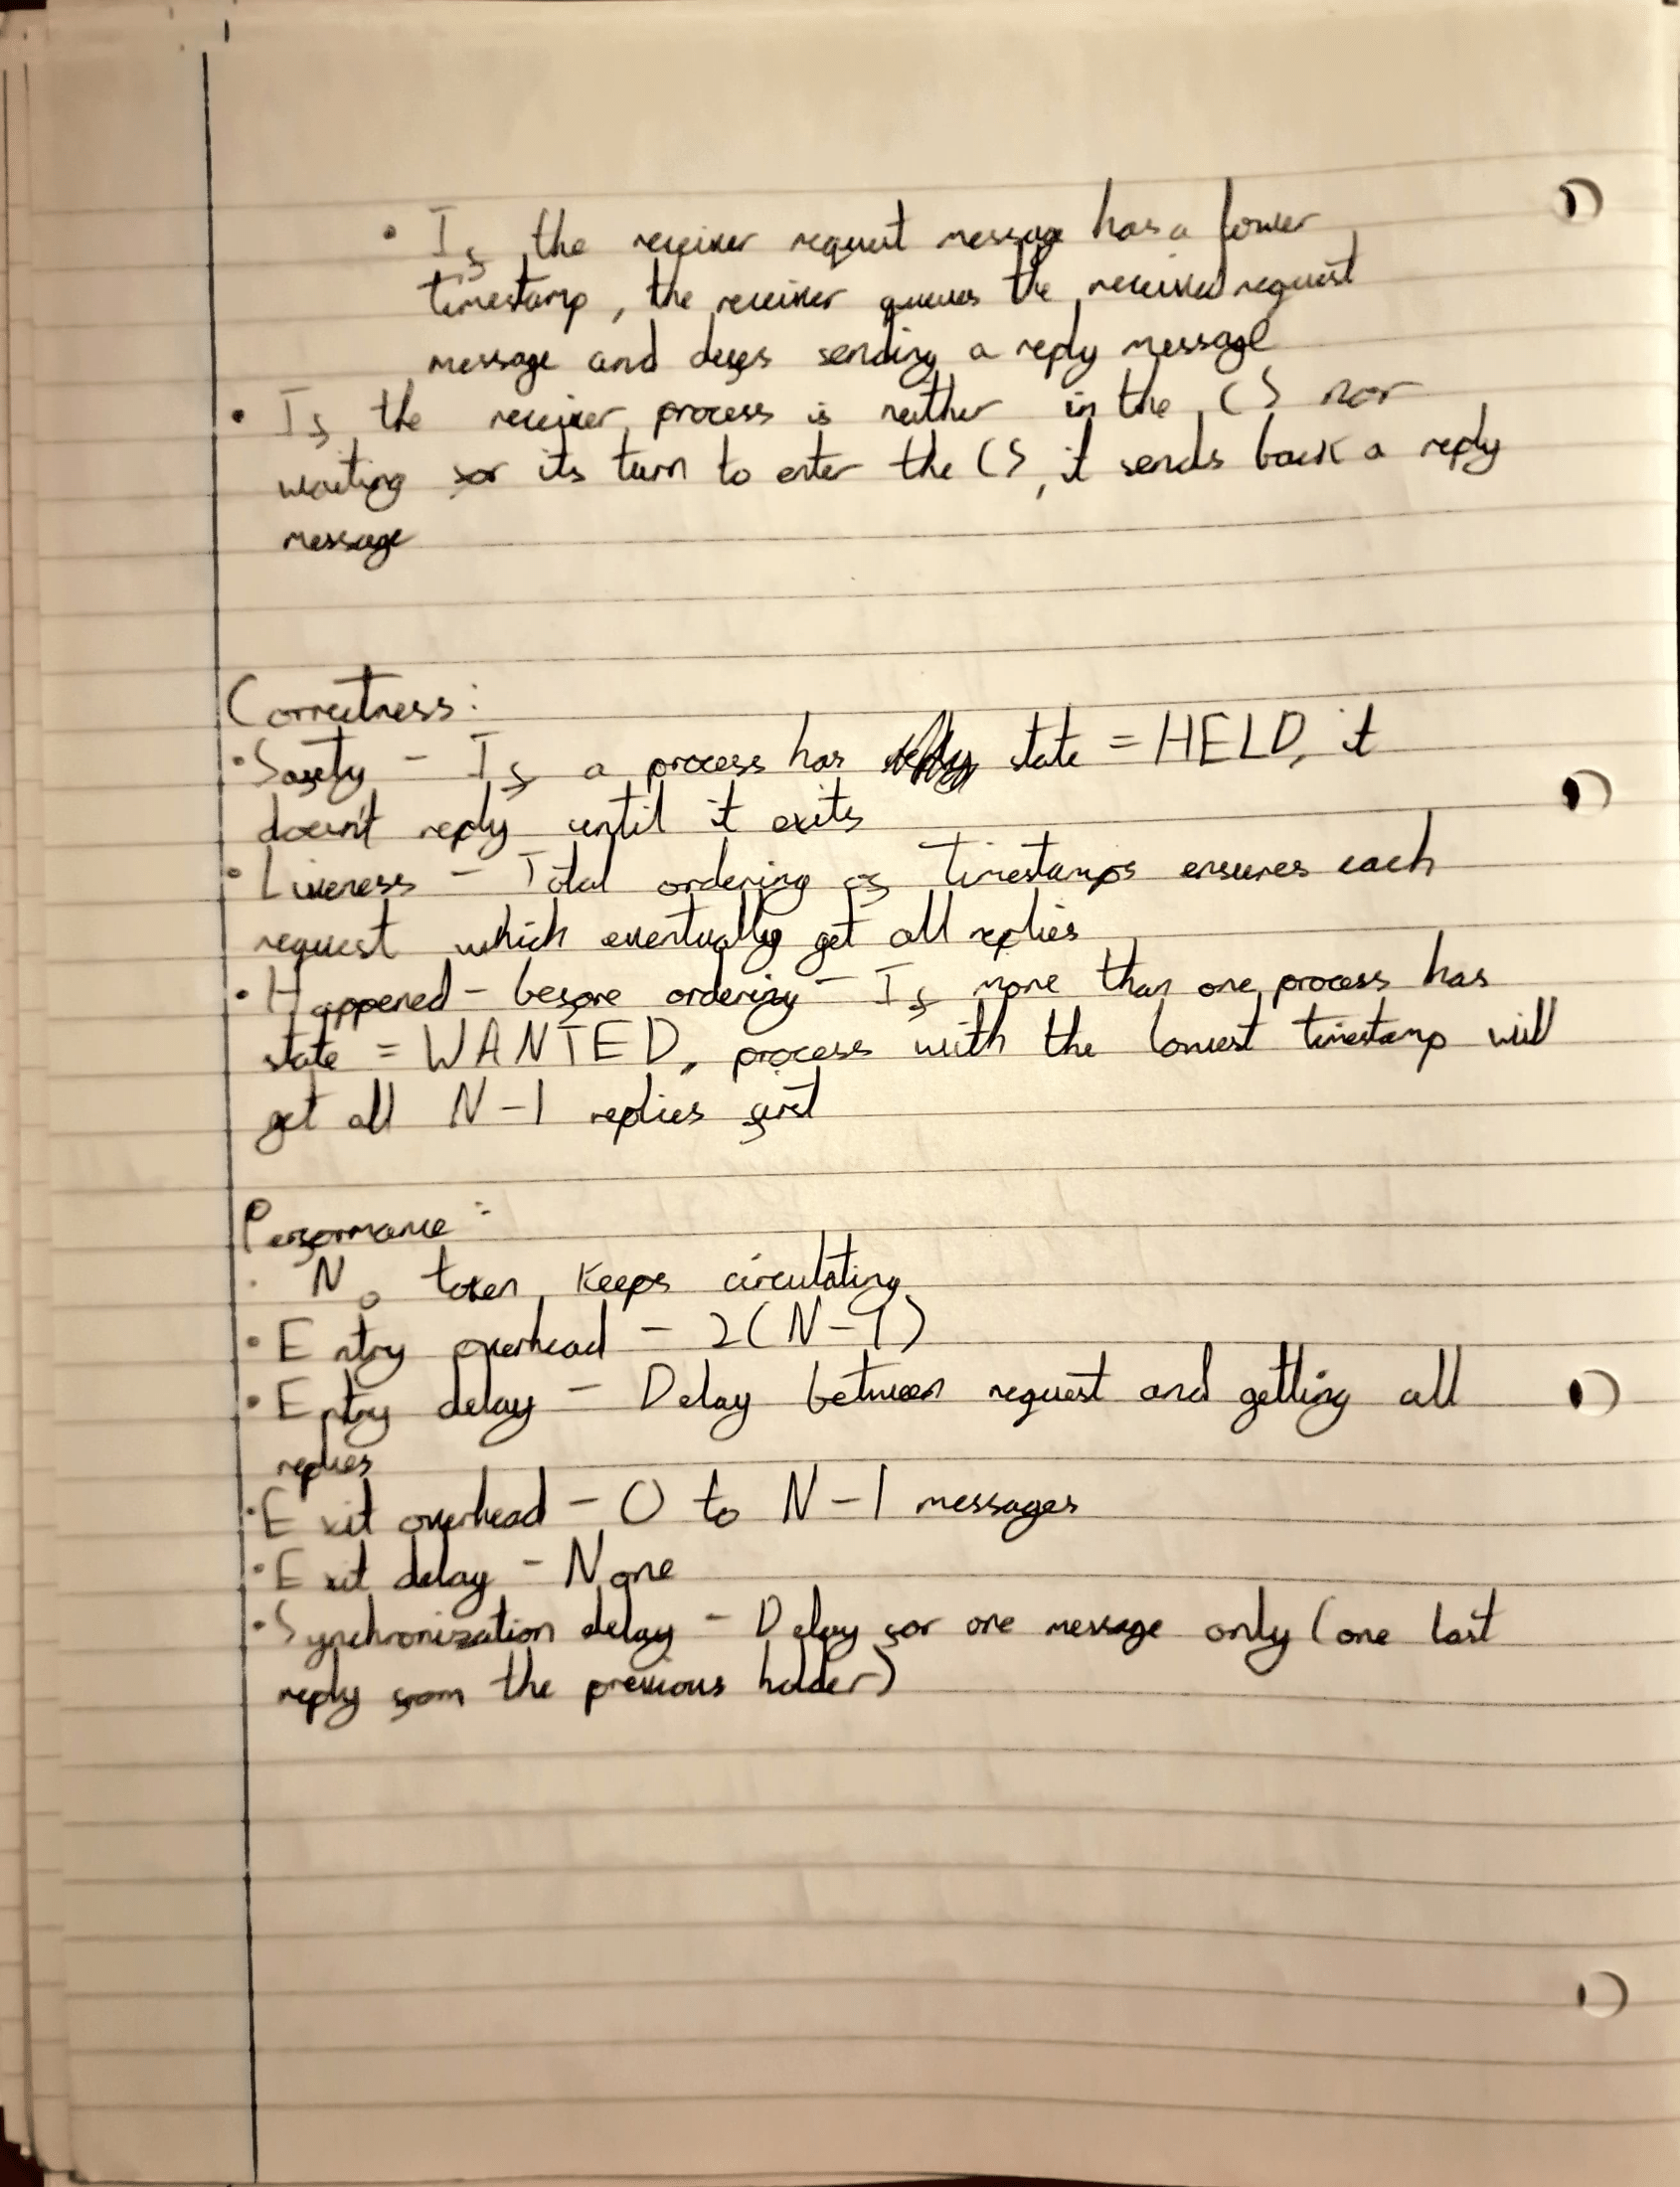 • If the receiver request message has a lower
timestamp, the receiver queues the received request
message and defers sending a reply message
• If the receiver process is neither in the CS nor
waiting for its turn to enter the CS, it sends back a reply
message
Correctness:
• Safety - If a process has state = HELD, it
doesn't reply until it exits
• Liveness - Total ordering of timestamps ensures each
request which eventually get all replies
• Happened-before ordering - If more than one process has
state = WANTED, process with the lowest timestamp will
get all N-1 replies first
Performance:
• No token keeps circulating
• Entry overhead - 2(N-1)
• Entry delay - Delay between request and getting all
replies
• Exit overhead - 0 to N-1 messages
• Exit delay - None
• Synchronization delay - Delay for one message only (one last
reply from the previous holder)